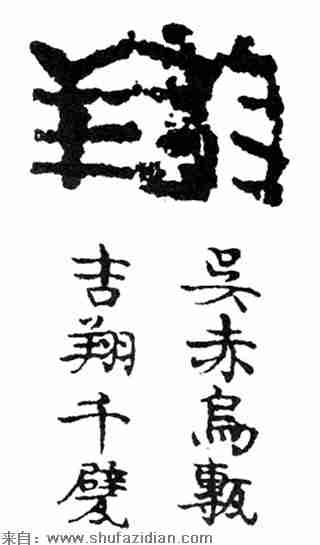 翔
吳赤烏甎
吉翔千甓
来自：www.shufazidian.com